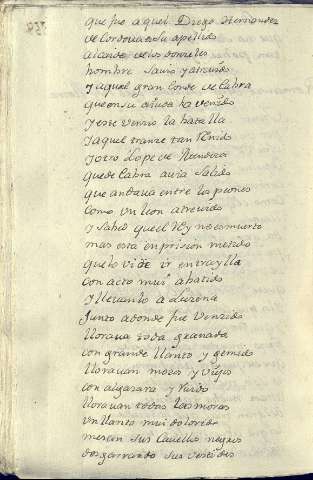 que fue aquel Diego Hernandez
de Cordoua es su apellido
alcaide de los donzeles
hombre sauio y atreuido
y aquel gran Conde de Cabra
que en su aiuda ha venido
y este vencio la batalla
y aquel trance tan Reñido
y otro Lope de Mendoza
que de Cabra auia salido
que andaua entre los peones
como vn leon atreuido
y sabed quel Rey no es muerto
mas esta en prision metido
que lo vide ir en traylla
con acto mui abatido
y lleuanlo a Luzena
Junto adonde fue vencido
lloraua toda granada
con grande llanto y gemido
llorauan mozos y viejos
con algazara y Ruido
llorauan todas las moras
vn llanto mui dolorido
mesan sus Cauellos negros
desgarrando sus vestidos